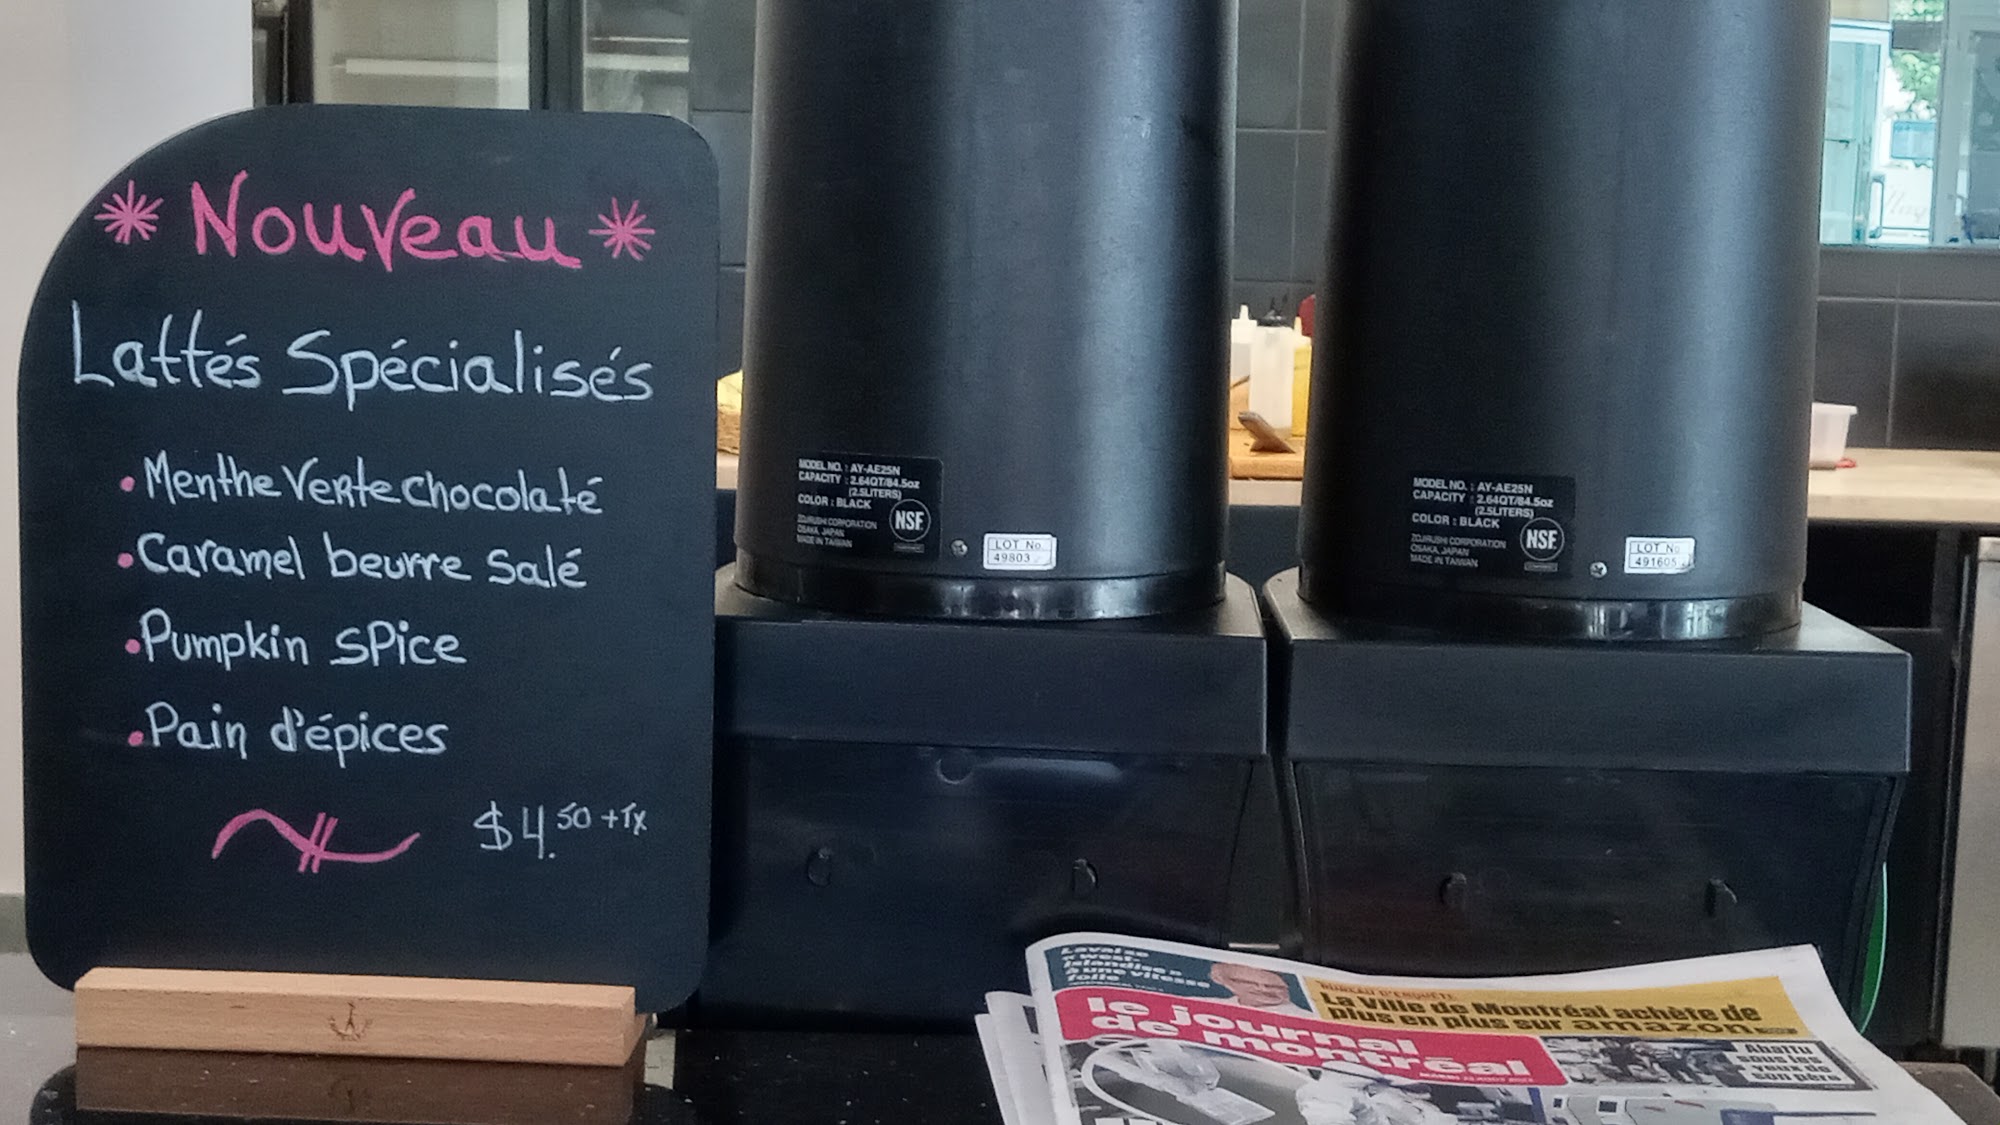 * Nouveau *
Lattés Spécialisés
• Menthe Verte chocolaté
• Caramel beurre salé
• Pumpkin spice
• Pain d'épices
$4.50 +Tx
MODEL NO. : AY-AE25N
CAPACITY : 2.64QT/84.5oz
(2.5LITERS)
COLOR : BLACK
ZOJIRUSHI CORPORATION
OSAKA, JAPAN
MADE IN TAIWAN
NSF
LOT No.
49803
MODEL NO. : AY-AE25N
CAPACITY : 2.64QT/84.5oz
(2.5LITERS)
COLOR : BLACK
ZOJIRUSHI CORPORATION
OSAKA, JAPAN
MADE IN TAIWAN
NSF
LOT No.
491605
Laval se
« west-
islandise »
à une vitesse
folle
BUREAU D'ENQUÊTE
La Ville de Montréal achète de
plus en plus sur amazon
le journal
de montréal
Abattu
sous les
yeux de
son père